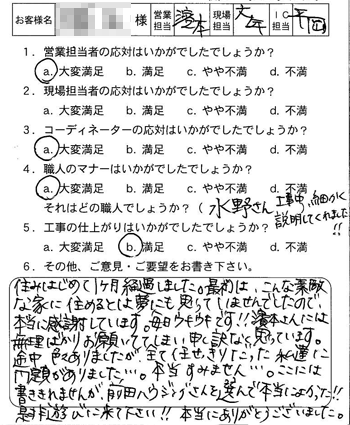 お客様名 様 営業担当 濱本 現場担当 IC担当 平田
1．営業担当者の応対はいかがでしたでしょうか？
a. 大変満足 b. 満足 c. やや不満 d. 不満
2．現場担当者の応対はいかがでしたでしょうか？
a. 大変満足 b. 満足 c. やや不満 d. 不満
3．コーディネーターの応対はいかがでしたでしょうか？
a. 大変満足 b. 満足 c. やや不満 d. 不満
4．職人のマナーはいかがでしたでしょうか？
a. 大変満足 b. 満足 c. やや不満 d. 不満
それはどの職人でしょうか？（ 水野さん 工事中、細かく
説明してくれました!!
5．工事の仕上がりはいかがでしたでしょうか？
a. 大変満足 b. 満足 c. やや不満 d. 不満
6．その他、ご意見・ご要望をお書き下さい。
住みはじめて1ヶ月経過しました。最初は、こんな素敵
な家に住めるとは夢にも思っていませんでしたので、
本当に感謝しています。毎日ウキウキです!!濱本さんには
無理ばかりお願いしてしまい申し訳なく思っています。
途中色々ありましたが、全て任せっきりだった私達に
問題がありました…。本当すみません…。ここには
書ききれませんが、前田ハウジングさんを選んで本当によかった!!
是非遊びに来て下さい!!本当にありがとうございました。